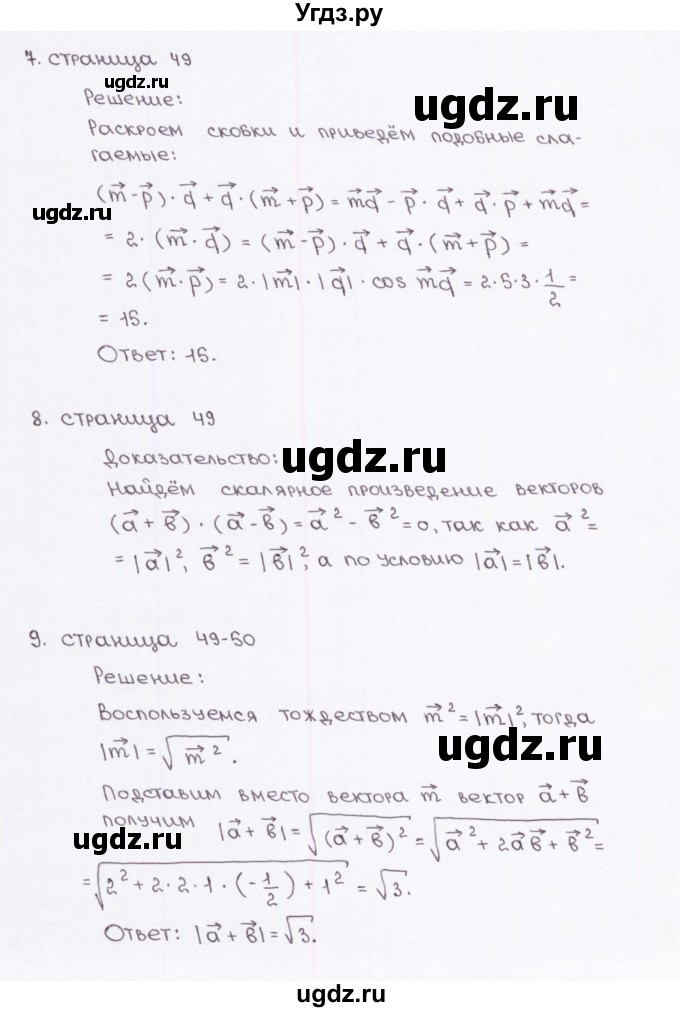 Угдз.ру
7. страница 49
ugdz.ru
ugdz.ru
Решение:
Раскроем скобки и приведём подобные сла-
гаемые:
(m⃗-p⃗)·q⃗+q⃗·(m⃗+p⃗)=m⃗q⃗-p⃗·q⃗+q⃗·p⃗+m⃗q⃗=
ugdz.ru
=2·(m⃗·q⃗)=(m⃗-p⃗)·q⃗+q⃗·(m⃗+p⃗)=
=2(m⃗·p⃗)=2·|m⃗|·|q⃗|·cos m⃗q⃗=2·5·3·1/2=
=15.
Ответ: 15.
8. страница 49
Доказательство:
ugdz.ru
Найдём скалярное произведение векторов
(a⃗+в⃗)·(a⃗-в⃗)=a⃗²-в⃗²=0, так как a⃗²=
ugdz.ru
=|a⃗|², в⃗²=|в⃗|², а по условию |a⃗|=|в⃗|.
9. страница 49-50
Решение:
Воспользуемся тождеством m⃗²=|m⃗|², тогда
ugdz.ru
|m⃗|=√m⃗².
Подставим вместо вектора m⃗ вектор a⃗+в⃗
получим |a⃗+в⃗|=√(a⃗+в⃗)²=√a⃗²+2a⃗в⃗+в⃗²=
ugdz.ru
=√2²+2·2·1·(-1/2)+1²=√3.
Ответ: |a⃗+в⃗|=√3.
ugdz.ru